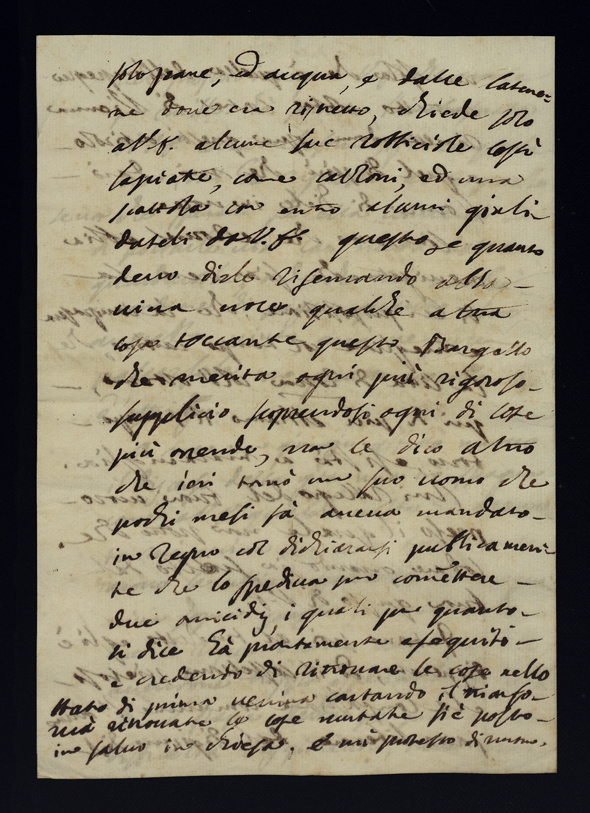 solo pane, ed acqua, e dalle Catene
ne dove era ristretto, chiede solo
a V.S. alcune sue robbiciole così
lapiate, come calzoni, ed una
scattola con entro alcuni
dateli da V.S. questo è quanto
devo dirle riservando alla
viva voce qualche altra
cosa toccante questo Bargello
che merita ogni più rigoroso
supplicio scoprendosi ogni dì cose
più orrende, ma le dico altro
che ieri tornò un suo uomo che
pochi mesi fà aveva mandato
in Regno col dichiararsi publicamen
te che lo spediva per comettere
due omicidij, i quali per quanto
si dice hà prontamente esequito
e credendo di ritrovare le cose nello
stato di prima veniva cantando, il
ritrovate le cose mutate si è posto
in salvo in chiesa. e mi protesto di nuovo.